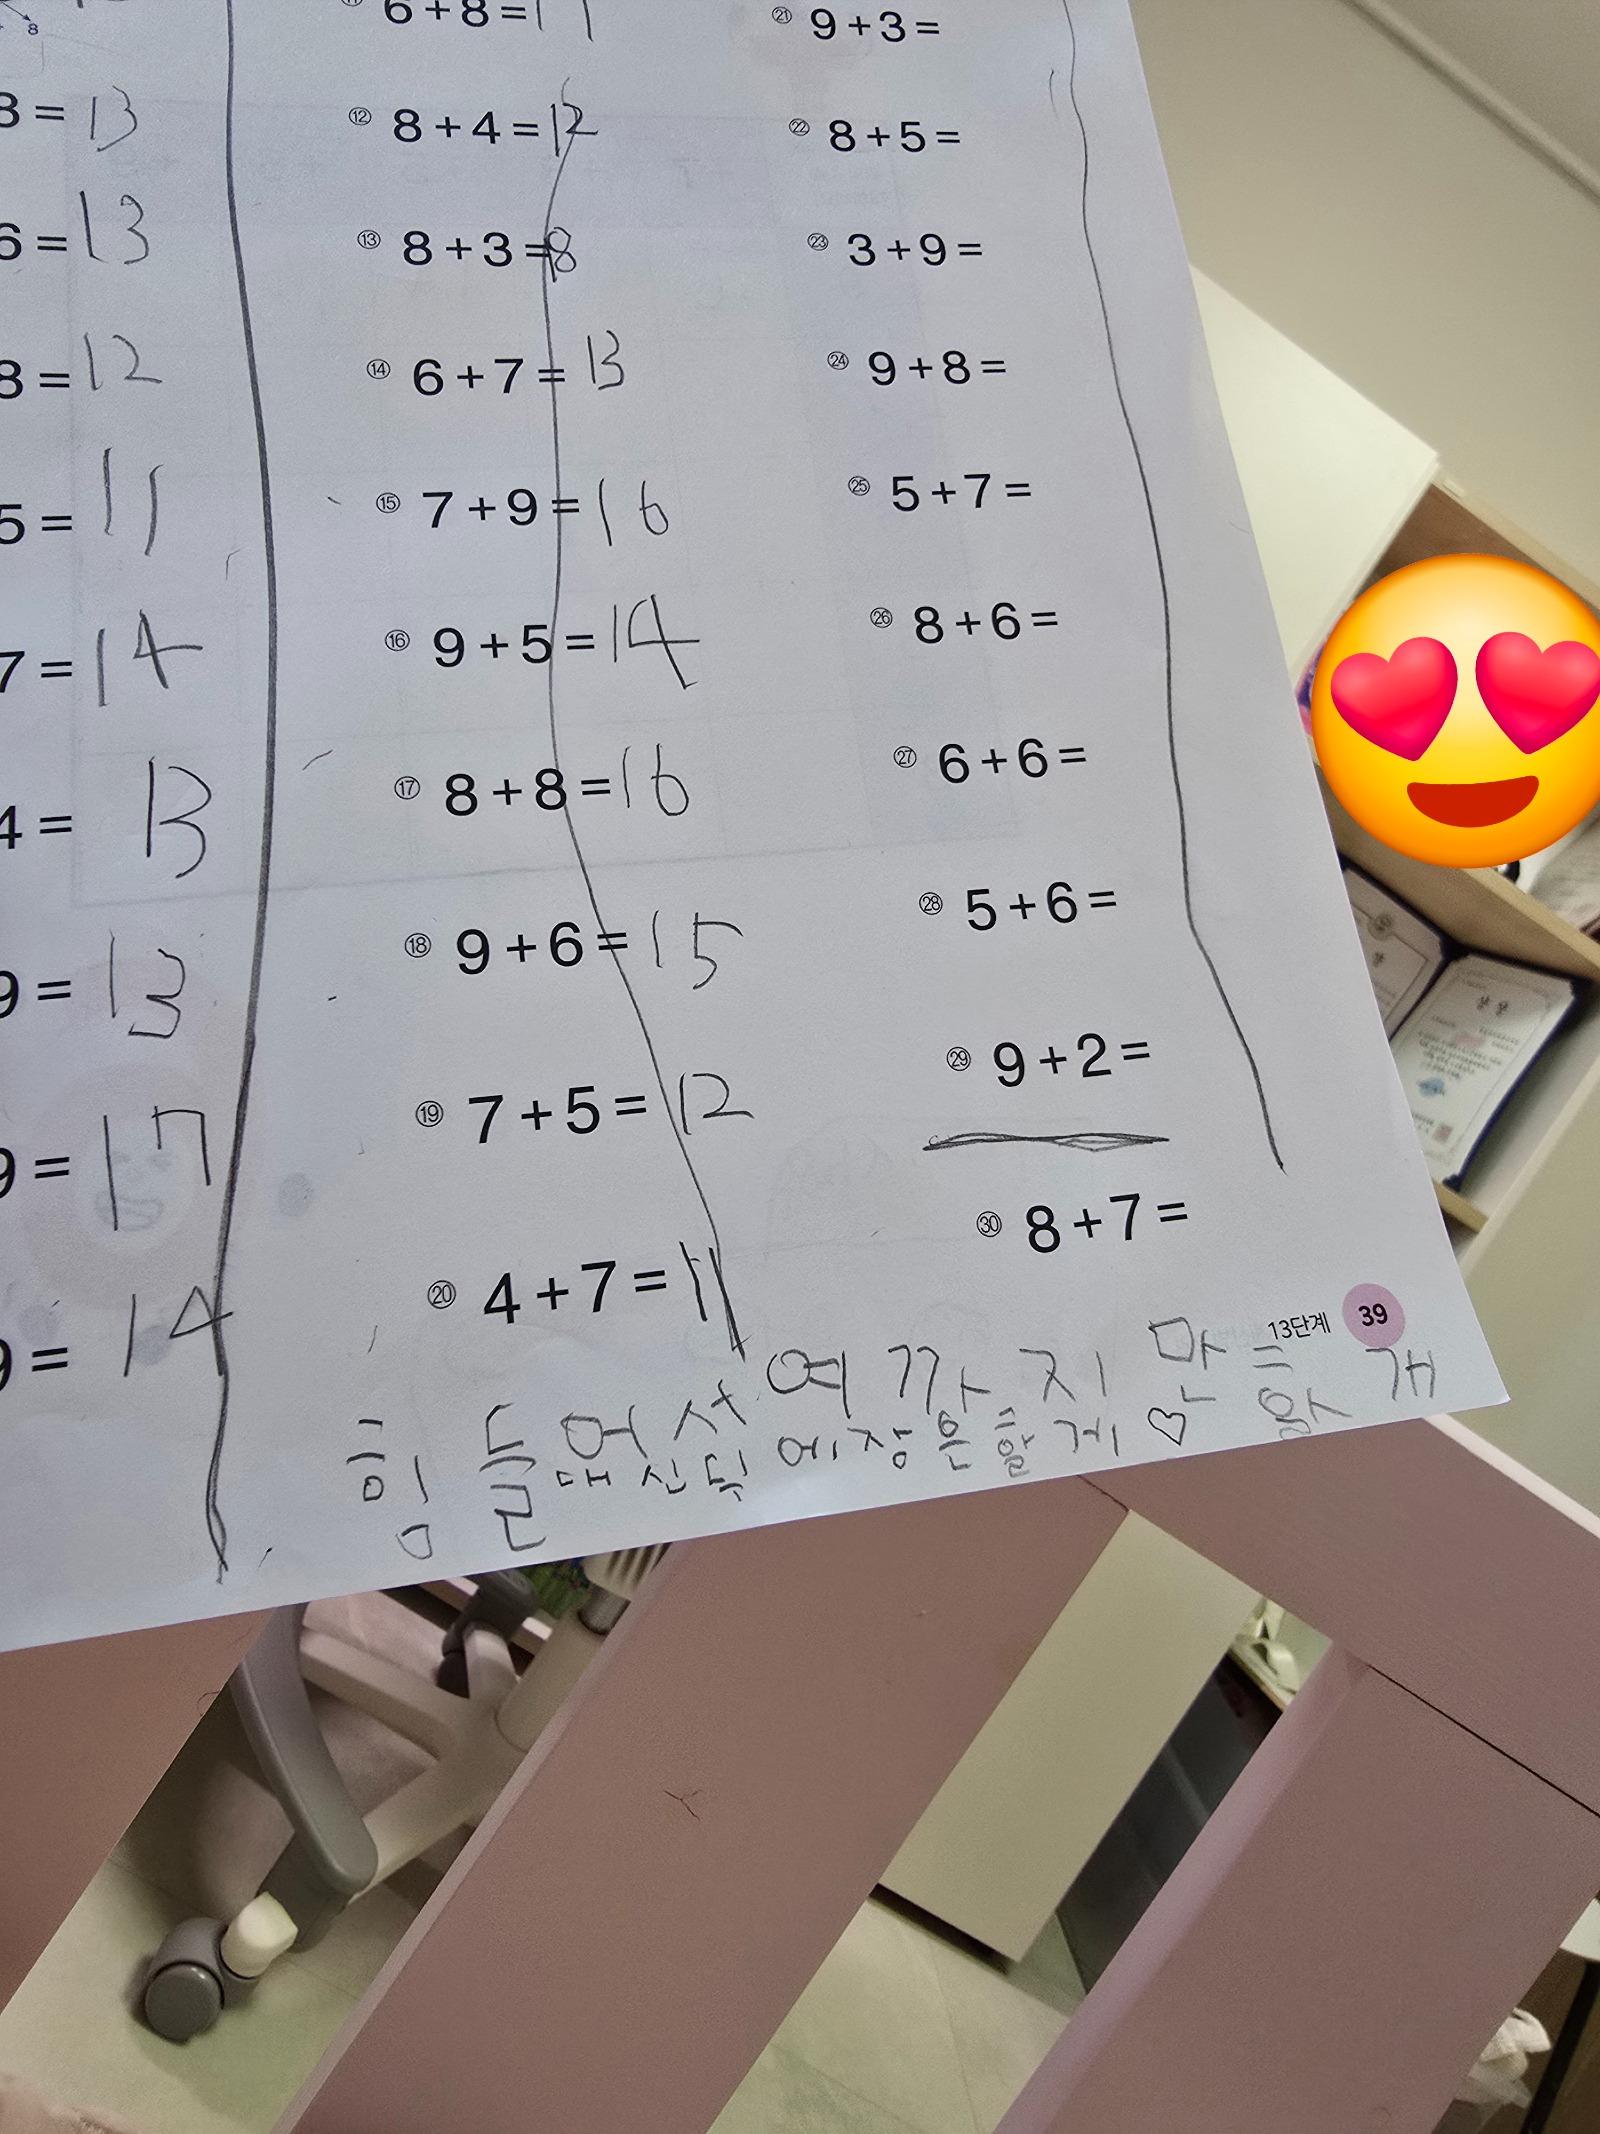 8
3 = 13
6 = 13
8 = 12
5 = 11
7 = 14
4 = 13
9 = 13
9 = 17
9 = 14
6 + 8 =
⑫ 8 + 4 = 12
⑬ 8 + 3 = 18
⑭ 6 + 7 = 13
⑮ 7 + 9 = 16
⑯ 9 + 5 = 14
⑰ 8 + 8 = 16
⑱ 9 + 6 = 15
⑲ 7 + 5 = 12
⑳ 4 + 7 = 11
㉑ 9 + 3 =
㉒ 8 + 5 =
㉓ 3 + 9 =
㉔ 9 + 8 =
㉕ 5 + 7 =
㉖ 8 + 6 =
㉗ 6 + 6 =
㉘ 5 + 6 =
㉙ 9 + 2 =
㉚ 8 + 7 =
13단계 39
힘 들어서 여까지 만 할개
대신 뒷에장은 할게 ♡
상장